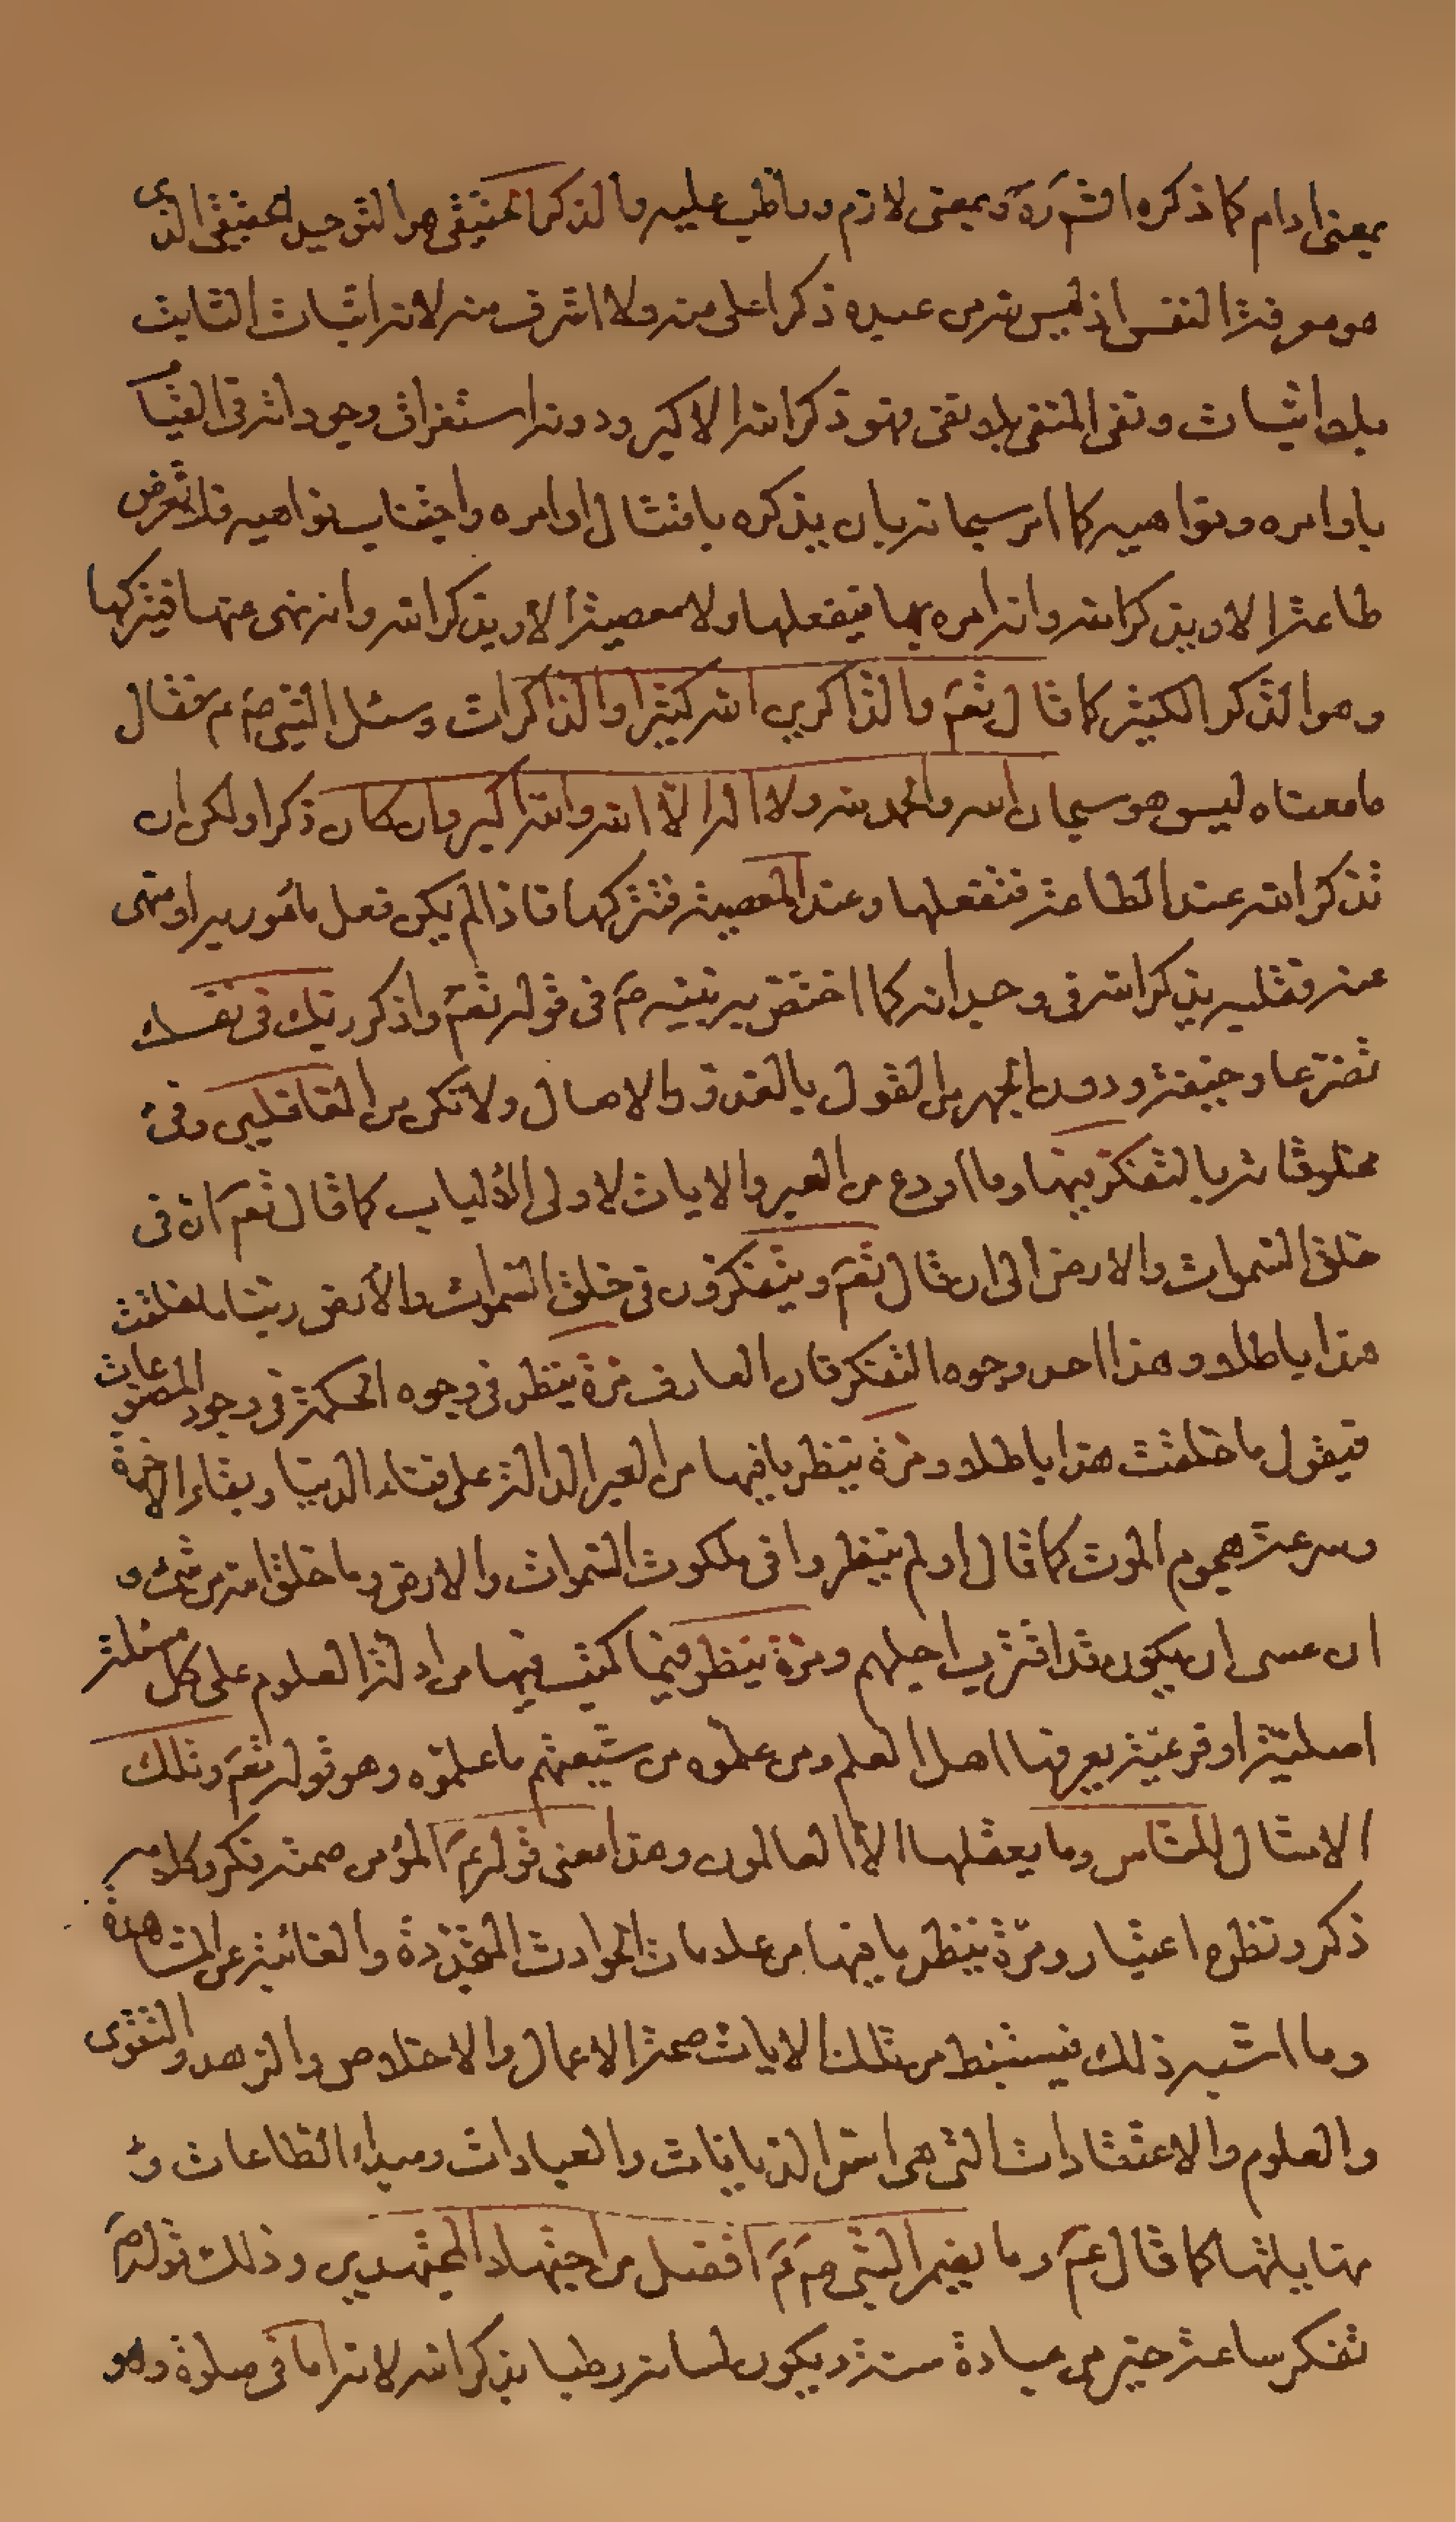 بمعنى ادام كما ذكره الش ره وبمعنى لازم وواظب عليه فالذكر الحقيقي هو التوحيد الحقيقي الذي
هو معرفة النفس اذ ليس لله من عبده ذكرا على منه ولا اشرف منه لانه اثبات الثابت
بلا اثبات ونفى المنفى بلا نفى فهو ذكر الله الاكبر ودونه استغراق وجوداته في القيام
باوامره ونواهيه كما امر سبحانه بان يذكره بامتثال اوامره واجتناب نواهيه فلا تعرض
طاعة الا ويذكر الله وانه امره بها فيفعلها ولا معصية الا ويذكر الله وانه نهى عنها فيتركها
وهو الذكر الكثير كما قال تعم والذاكرين الله كثيرا والذاكرات وسئل النبي صم م فقال
ما معناه ليس هو سبحان الله والحمد لله ولا اله الا الله والله اكبر وان كان ذكرا ولكن ان
تذكر الله عند الطاعة فتفعلها وعند المعصية فتتركها فاذا لم يكن فعل مأمور به او منهى
عنه فقلبه يذكر الله في وجدانه كما اختص به نبيه ص في قوله تعم واذكر ربك في نفسك
تضرعا وخيفة ودون الجهر من القول بالغدو والاصال ولا تكن من الغافلين وفي
مخلوقاته بالتفكر فيها وما اودع من العبر والايات لاولى الألباب كما قال تعم ان في
خلق السموات والارض الى ان قال تعم ويتفكرون في خلق السموات والأرض ربنا ما خلقت
هذا باطلا وهذا احد وجوه التفكر فان العارف مرة ينظر في وجوه الحكمة في وجود المصنوعات
فيقول ما خلقت هذا باطلا ومرة ينظر ما فيها من العبر الدالة على فناء الدنيا وبقاء الاخرة
وسرعة هجوم الموت كما قال اولم ينظروا في ملكوت السموات والارض وما خلق الله من شئ و
ان عسى ان يكون قد اقترب اجلهم ومرة ينظر فيما كتب فيها من ادلة العلوم على كل مسئلة
اصلية او فرعية يعرفها اهل العلم ومن علموه من شيعتهم ما علموه وهو قوله تعم وتلك
الامثال للناس وما يعقلها الا العالمون وهذا معنى قوله عم المؤمن صمته فكر وكلامه
ذكر ونظره اعتبار ومرة ينظر ما فيها من علامات الحوادث المتجددة والغائبة عن المشاهدة
وما اشبه ذلك فيستنبط من تلك الايات صحة الاعمال والاخلاص والزهد والتقوى
والعلوم والاعتقادات التي هي اس الديانات والعبادات ومبداء الطاعات و
منها يلتها كما قال عم وما يضمر النبي صم م افضل من اجتهاد المجتهدين وذلك قوله ص
تفكر ساعة خير من عبادة سنة ويكون لسانه رطبا بذكر الله لانه اما في صلوة وهو